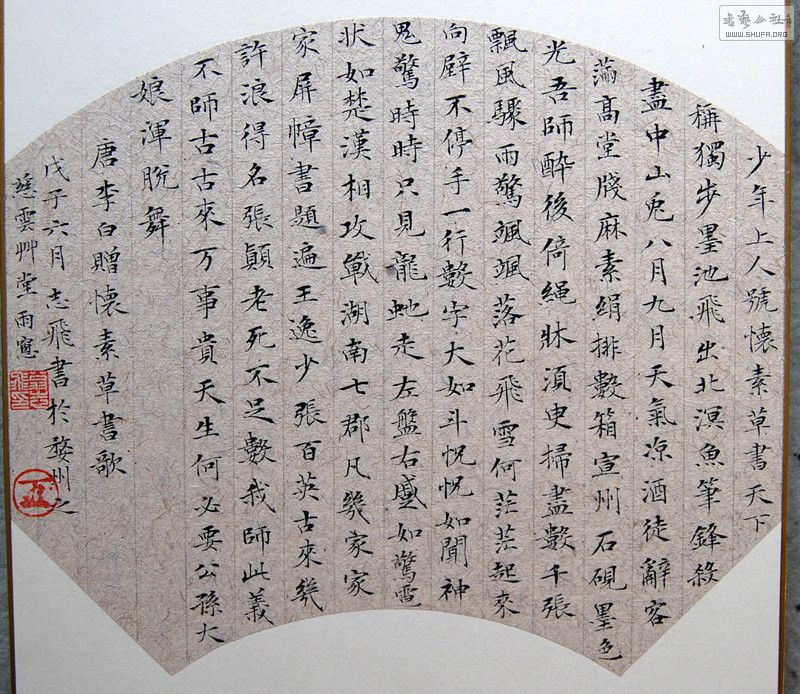 少年上人號懷素草書天下
稱獨步墨池飛出北溟魚筆鋒殺
盡中山兔八月九月天氣凉酒徒辭客
滿高堂牋麻素絹排數箱宣州石硯墨色
光吾師醉後倚繩牀湏臾掃盡數千張
飄風驟雨驚颯颯落花飛雪何茫茫起來
向壁不停手一行數字大如斗怳怳如聞神
鬼驚時時只見龍虵走左盤右蹙如驚電
状如楚漢相攻戰湖南七郡凡幾家家
家屏幛書題遍王逸少張百英古來幾
許浪得名張顛老死不足數我師此義
不師古古來万事貴天生何必要公孫大
娘渾脫舞
唐李白贈懷素草書歌
戊子六月志飛書於婺州之
慈雲艸堂雨窓
書藝公社
WWW.SHUFA.ORG